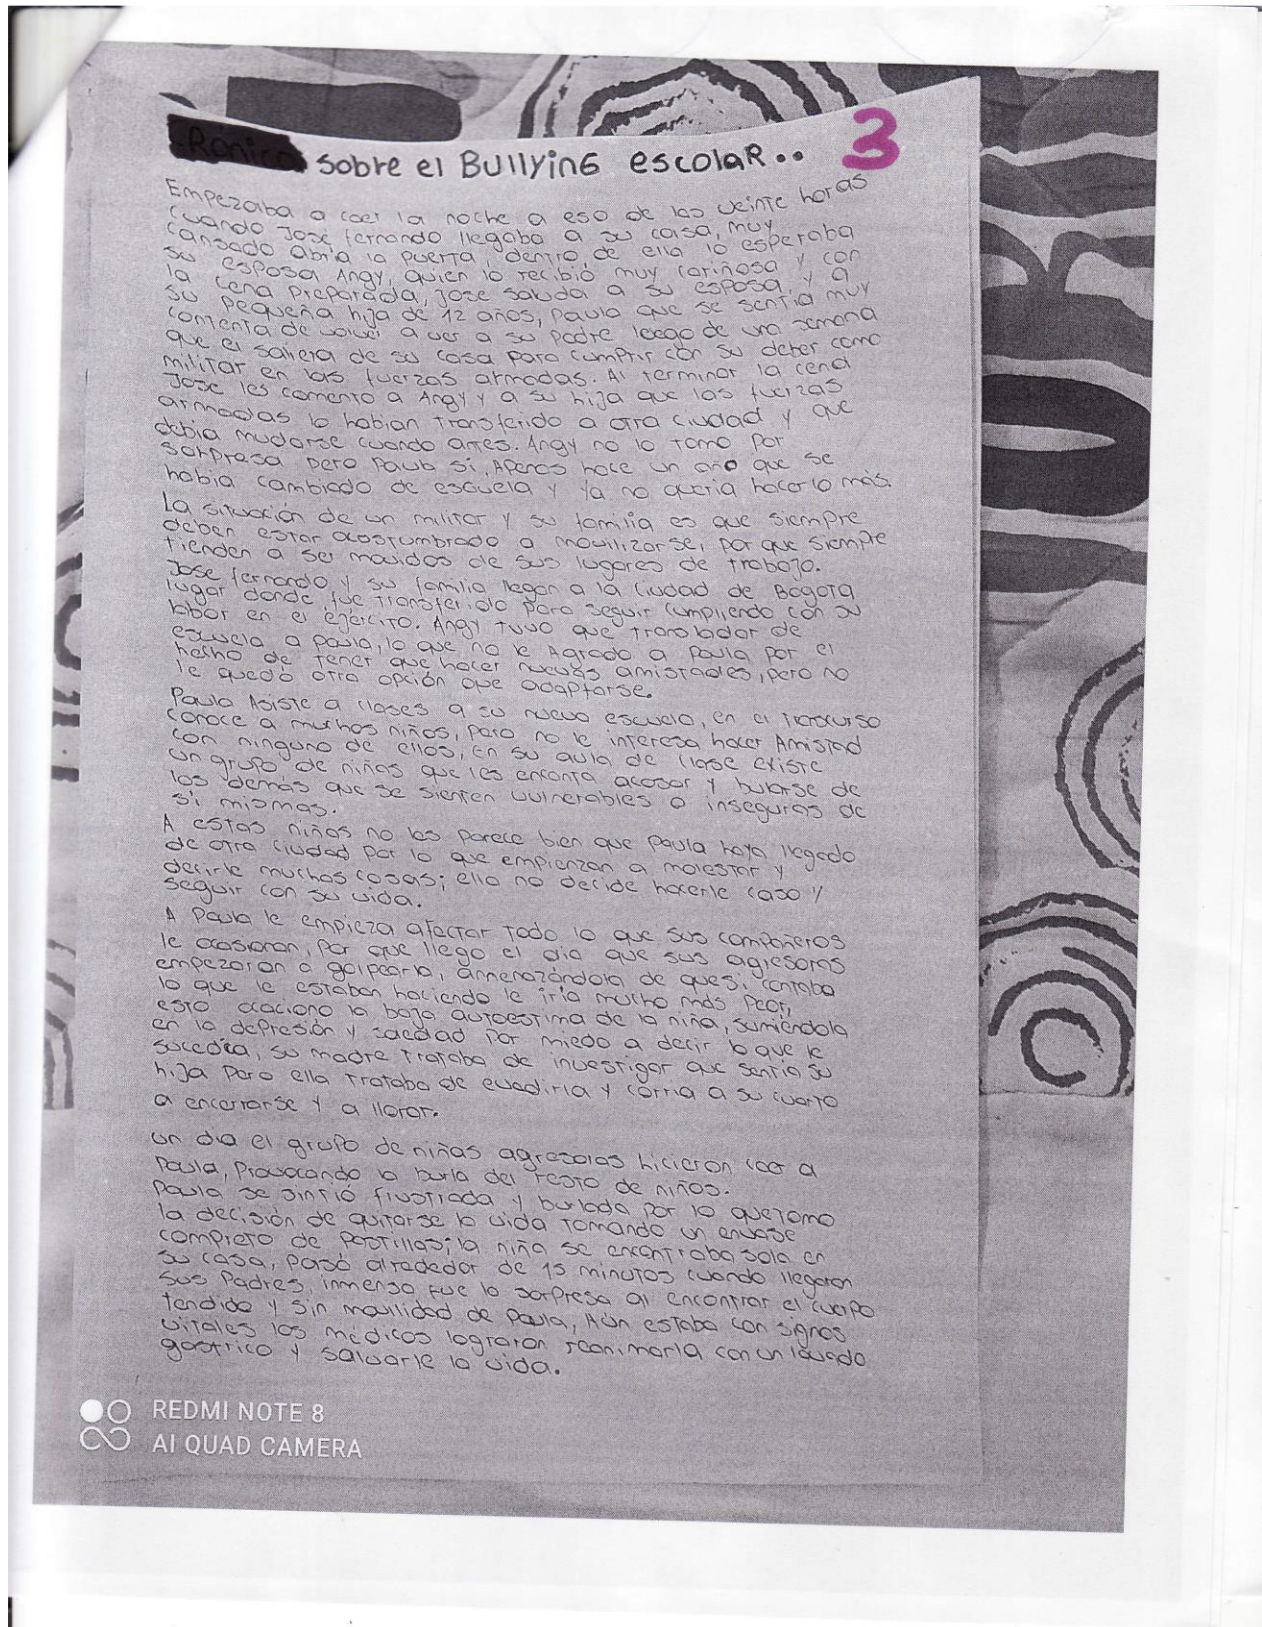 Ronica sobre el BullyinG escolaR..
3
Empezaba a caer la noche a eso de las veinte horas
cuando José fernando llegaba a su casa, muy
cansado abria la puerta, dentro de ella lo esperaba
su esposa Angy, quien lo recibió muy cariñosa y con
la cena preparada, Jose saluda a su esposa, y a
su pequeña hija de 12 años, Paula que se sentia muy
comenta de volver a ver a su padre luego de una semana
que el saliera de su casa para cumplir con su deber como
militar en las fuerzas armadas. Al terminar la cena
Jose les comento a Angy y a su hija que las fuerzas
armadas lo habian transferido a otra ciudad y que
debia mudarse cuando antes. Angy no lo tomo por
sorpresa pero Paula si, Apenas hace un año que se
habia cambiado de escuela y ya no queria hacerlo más.
La situación de un militar y su familia es que siempre
deben estar acostumbrado a movilizarse, por que siempre
tienden a ser movidos de sus lugares de trabajo.
Jose fernando y su familia llegan a la ciudad de Bogota
lugar donde fue transferido para seguir cumpliendo con su
labor en el ejercito. Angy tuvo que transladar de
escuela a paula, lo que no le Agrado a Paula por el
hecho de tener que hacer nuevas amistades, pero no
le quedó otra opción que adaptarse.
Paula Asiste a clases a su nueva escuela, en el
conoce a muchos niños, pero no le interesa hacer Amistad
con ninguno de ellos, en su aula de clase existe
un grupo de niñas que les encanta acosar y burlarse de
los demás que se sienten vulnerables o inseguras de
si mismas.
A estas niñas no les parece bien que Paula haya llegado
de otra ciudad por lo que empienzan a molestar y
decirle muchas cosas; ella no decide hacerle caso y
seguir con su vida.
A Paula le empieza afectar todo lo que sus compañeros
le ocasionan, por que llego el dia que sus agresoras
empezaron a golpearla, amenazándola de que si contaba
lo que le estaban haciendo le iria mucho más peor,
esto ocaciono la baja autoestima de la niña, sumiendola
en la depresión y por miedo a decir lo que le
sucedia, su madre trataba de investigar que sentia su
hija pero ella trataba de evadirla y corria a su cuarto
a encerrarse y a llorar.
un dia el grupo de niñas agresolas hicieron caer a
Paula, Provocando la burla del resto de niños.
Paula se sintió frustrada y burlada por lo que tomo
la decisión de quitarse la vida tomando un envase
completo de pastillas; la niña se encontraba sola en
su casa, pasó alrededor de 15 minutos cuando llegaron
sus Padres, inmensa fue la sorpresa al encontrar el cuerpo
tendido y sin movilidad de Paula, Aún estaba con signos
vitales los médicos lograron reanimarla con un lavado
gastrico y salvarle la vida.
REDMI NOTE 8
AI QUAD CAMERA